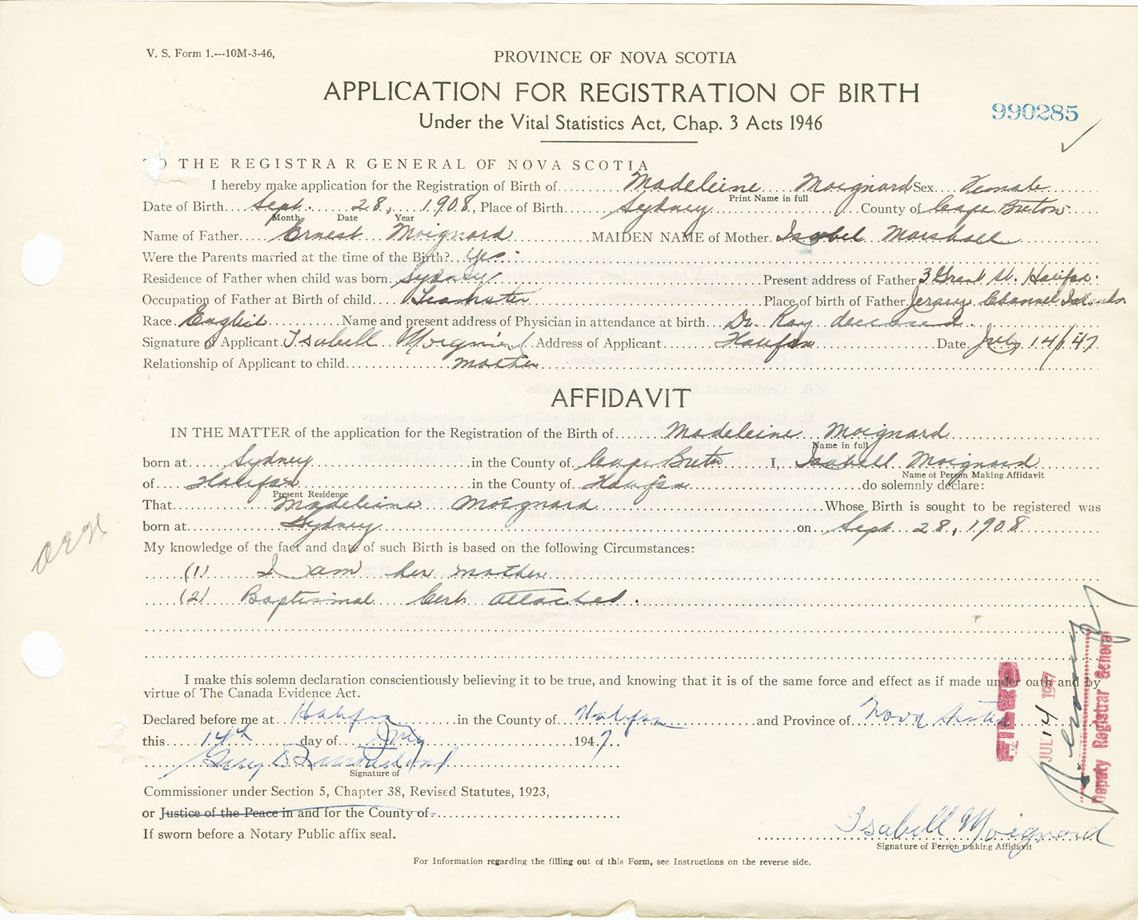 V. S. Form 1.---10M-3-46,
PROVINCE OF NOVA SCOTIA
APPLICATION FOR REGISTRATION OF BIRTH
990285
Under the Vital Statistics Act, Chap. 3 Acts 1946
TO THE REGISTRAR GENERAL OF NOVA SCOTIA
I hereby make application for the Registration of Birth of Madeleine Moignard Sex Female
Print Name in full
Date of Birth Sept. 28, 1908, Place of Birth Sydney County of Cape Breton
Month Date Year
Name of Father Ernest Moignard MAIDEN NAME of Mother Isabel Marshall
Were the Parents married at the time of the Birth? Yes.
Residence of Father when child was born Sydney Present address of Father 3 Grant St. Halifax.
Occupation of Father at Birth of child Teamster Place of birth of Father Jersey Channel Islands
Race English Name and present address of Physician in attendance at birth Dr. Kay deceased.
Signature of Applicant Isabell Address of Applicant Halifax Date July 14/47
Relationship of Applicant to child mother
AFFIDAVIT
IN THE MATTER of the application for the Registration of the Birth of Madeleine Moignard
Name in full
born at Sydney in the County of Cape Breton I, Isabell Moignard
Name of Person Making Affidavit
of Halifax in the County of Halifax do solemnly declare:
Present Residence
That Madeleine Moignard Whose Birth is sought to be registered was
born at Sydney on Sept 28, 1908
My knowledge of the fact and date of such Birth is based on the following Circumstances:
(1) I am her mother
(2) Baptismal Cert attached.
I make this solemn declaration conscientiously believing it to be true, and knowing that it is of the same force and effect as if made under oath and by
virtue of The Canada Evidence Act.
Declared before me at Halifax in the County of Halifax and Province of Nova Scotia
this 14th day of July 1947
Signature of
Commissioner under Section 5, Chapter 38, Revised Statutes, 1923,
or Justice of the Peace in and for the County of
If sworn before a Notary Public affix seal.
Isabell Moignard
Signature of Person making Affidavit
FILED
JUL 14 1947
Deputy Registrar General
For Information regarding the filling out of this Form, see Instructions on the reverse side.